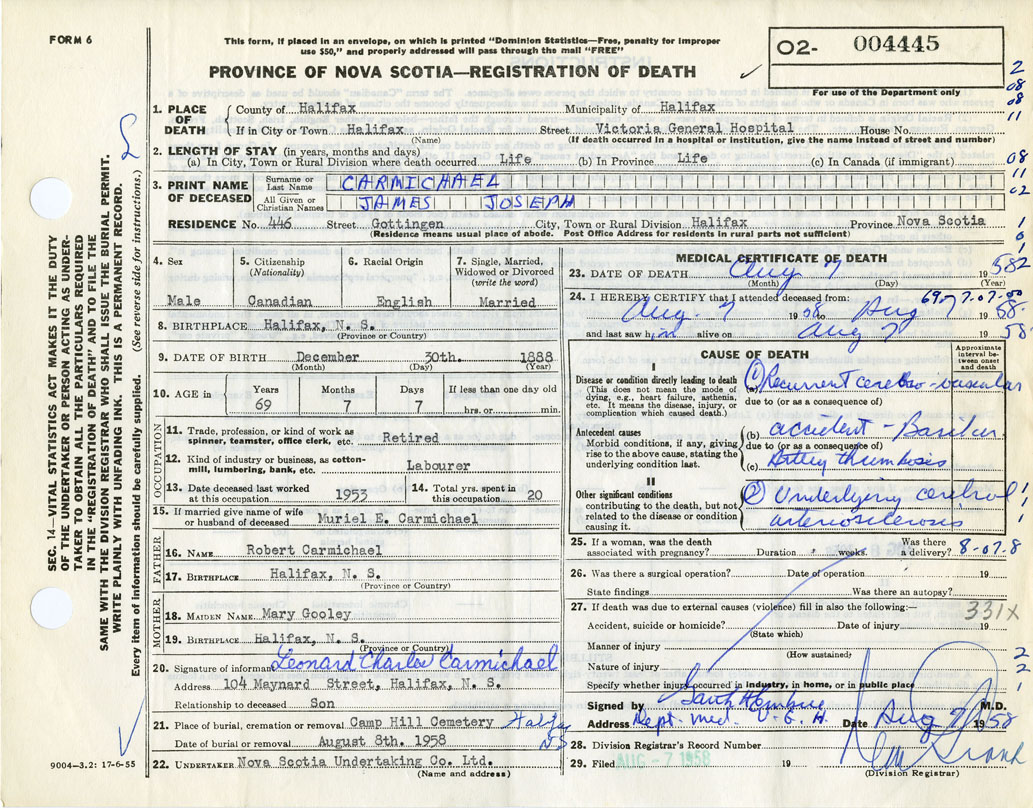 FORM 6
This form, if placed in an envelope, on which is printed "Dominion Statistics—Free, penalty for improper
use $50," and properly addressed will pass through the mail "FREE"
PROVINCE OF NOVA SCOTIA—REGISTRATION OF DEATH
02- 004445
For use of the Department only
2
08
08
11
1. PLACE OF DEATH
County of Halifax Municipality of Halifax
If in City or Town Halifax Street Victoria General Hospital House No.
(Name) (If death occurred in a hospital or institution, give the name instead of street and number)
2. LENGTH OF STAY (in years, months and days)
(a) In City, Town or Rural Division where death occurred Life (b) In Province Life (c) In Canada (if immigrant)
08
11
02
3. PRINT NAME OF DECEASED
Surname or Last Name CARMICHAEL
All Given or Christian Names JAMES JOSEPH
RESIDENCE No. 446 Street Gottingen City, Town or Rural Division Halifax Province Nova Scotia
(Residence means usual place of abode. Post Office Address for residents in rural parts not sufficient)
4. Sex
Male
5. Citizenship (Nationality)
Canadian
6. Racial Origin
English
7. Single, Married, Widowed or Divorced (write the word)
Married
8. BIRTHPLACE Halifax, N. S.
(Province or Country)
9. DATE OF BIRTH December 30th. 1888
(Month) (Day) (Year)
10. AGE in
Years 69
Months 7
Days 7
If less than one day old
hrs. or min.
OCCUPATION
11. Trade, profession, or kind of work as
spinner, teamster, office clerk, etc. Retired
12. Kind of industry or business, as cotton-
mill, lumbering, bank, etc. Labourer
13. Date deceased last worked
at this occupation 1953
14. Total yrs. spent in
this occupation 20
15. If married give name of wife
or husband of deceased Muriel E. Carmichael
FATHER
16. NAME Robert Carmichael
17. BIRTHPLACE Halifax, N. S.
(Province or Country)
MOTHER
18. MAIDEN NAME Mary Gooley
19. BIRTHPLACE Halifax, N. S.
(Province or Country)
20. Signature of informant Leonard Charles Carmichael
Address 104 Maynard Street, Halifax, N. S.
Relationship to deceased Son
21. Place of burial, cremation or removal Camp Hill Cemetery Halifax
NS
Date of burial or removal August 8th. 1958
22. UNDERTAKER Nova Scotia Undertaking Co. Ltd.
(Name and address)
MEDICAL CERTIFICATE OF DEATH
23. DATE OF DEATH Aug 7 1958
(Month) (Day) (Year)
24. I HEREBY CERTIFY that I attended deceased from: 69-7-07-00
Aug. 7 1958 to Aug 7 1958
and last saw him alive on Aug 7 1958
CAUSE OF DEATH
Approximate interval between onset and death
I
Disease or condition directly leading to death
(This does not mean the mode of
dying, e.g., heart failure, asthenia,
etc. It means the disease, injury, or
complication which caused death.)
(1)
(a) Recurrent cerebro-vascular
due to (or as a consequence of)
Antecedent causes
Morbid conditions, if any, giving
rise to the above cause, stating the
underlying condition last.
(b) accident - Basilar
due to (or as a consequence of)
(c) Artery thrombosis
II
Other significant conditions
contributing to the death, but not
related to the disease or condition
causing it.
(2) Underlying cerebral
arteriosclerosis
25. If a woman, was the death
associated with pregnancy? Duration weeks. Was there
a delivery? 8-07-8
26. Was there a surgical operation? Date of operation 19
State findings Was there an autopsy?
27. If death was due to external causes (violence) fill in also the following:— 331X
Accident, suicide or homicide? Date of injury 19
(State which)
Manner of injury
(How sustained)
Nature of injury
Specify whether injury occurred in industry, in home, or in public place
Signed by M.D.
Address Dept. med. V. G. H. Date Aug 7 1958
28. Division Registrar's Record Number
29. Filed AUG - 7 1958 19
(Division Registrar)
SEC. 14—VITAL STATISTICS ACT MAKES IT THE DUTY
OF THE UNDERTAKER OR PERSON ACTING AS UNDER-
TAKER TO OBTAIN ALL THE PARTICULARS REQUIRED
IN THE "REGISTRATION OF DEATH" AND TO FILE THE
SAME WITH THE DIVISION REGISTRAR WHO SHALL ISSUE THE BURIAL PERMIT.
WRITE PLAINLY WITH UNFADING INK. THIS IS A PERMANENT RECORD.
Every item of information should be carefully supplied. (See reverse side for instructions.)
9004-3.2: 17-6-55